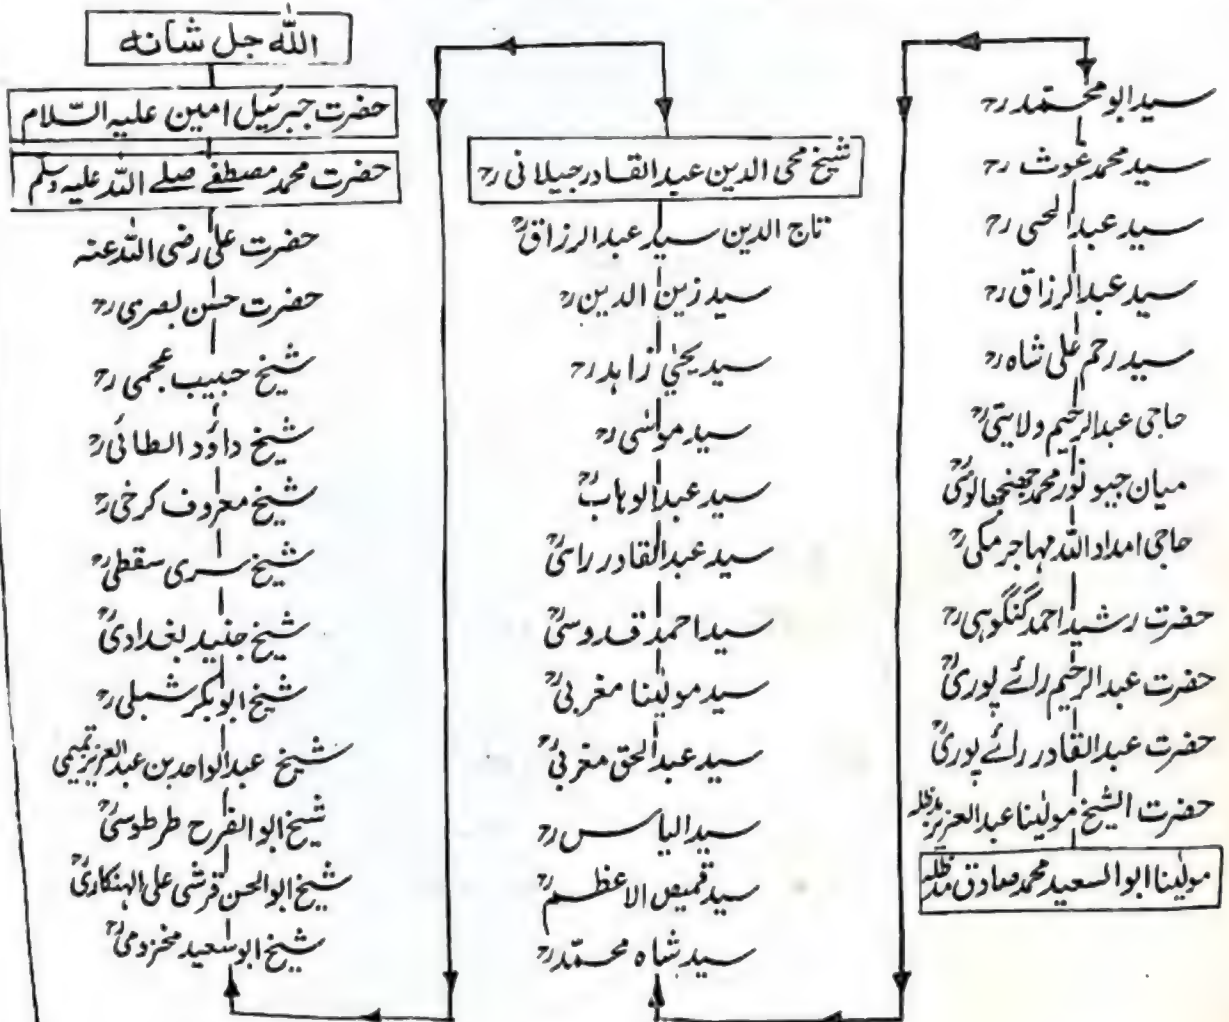 اللّٰه جل شانہ
حضرت جبرئیل امین علیہ السّلام
حضرت محمد مصطفےٰ صلے اللہ علیہ وسلم
حضرت علی رضی اللہ عنہ
حضرت حسن بصری رح
شیخ حبیب عجمی رح
شیخ داؤد الطائی رح
شیخ معروف کرخی رح
شیخ سری سقطی رح
شیخ جنید بغدادی رح
شیخ ابوبکر شبلی رح
شیخ عبدالواحد بن عبدالعزیز تمیمی
شیخ ابوالفرح طرطوسی رح
شیخ ابوالحسن قرشی علی الہنکاری رح
شیخ ابوسعید مخزومی رح
شیخ محی الدین عبدالقادر جیلانی رح
تاج الدین سید عبدالرزاق رح
سید زین الدین رح
سید یحیٰی زاہد رح
سید موسٰی رح
سید عبدالوہاب رح
سید عبدالقادر راسی رح
سید احمد قدوسی رح
سید مولٰینا مغربی رح
سید عبدالحق مغربی رح
سید الیاس رح
سید قمیص الاعظم رح
سید شاہ محمّد رح
سید ابو محمّد رح
سید محمد غوث رح
سید عبدالحی رح
سید عبدالرزاق رح
سید رحم علی شاہ رح
حاجی عبدالرحیم ولایتی رح
میان جیو نور محمد جھنجھانوی رح
حاجی امداد اللہ مہاجر مکی رح
حضرت رشید احمد گنگوہی رح
حضرت عبدالرحیم رائے پوری رح
حضرت عبدالقادر رائے پوری رح
حضرت الشیخ مولٰینا عبدالعزیز مدظلہ
مولٰینا ابوالسعید محمد صادق مدظلہ